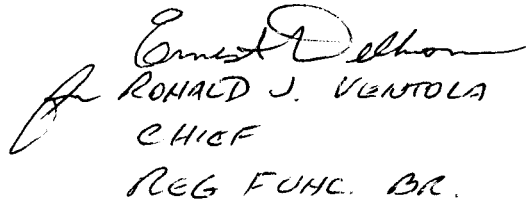 Ernest Delhom
for RONALD J. VENTOLA
CHIEF
REG FUNC. BR.